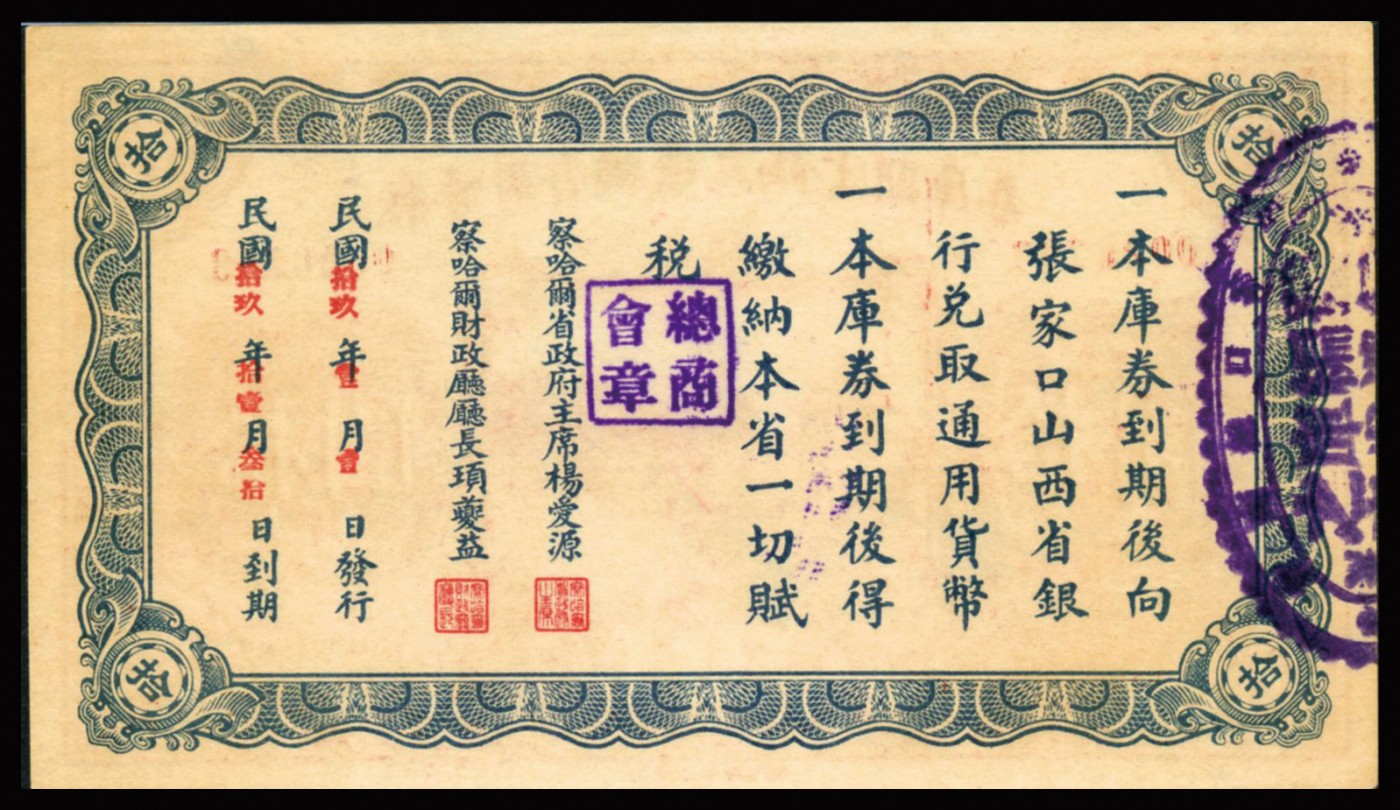 拾
拾
一本庫券到期後向
張家口山西省銀
行兑取通用貨幣
一本庫券到期後得
繳納本省一切賦
税
總商
會章
察哈爾省政府主席楊愛源
察哈爾財政廳廳長頊夔益
民國拾玖年壹月壹日發行
民國拾玖年拾壹月叁拾日到期
拾
拾